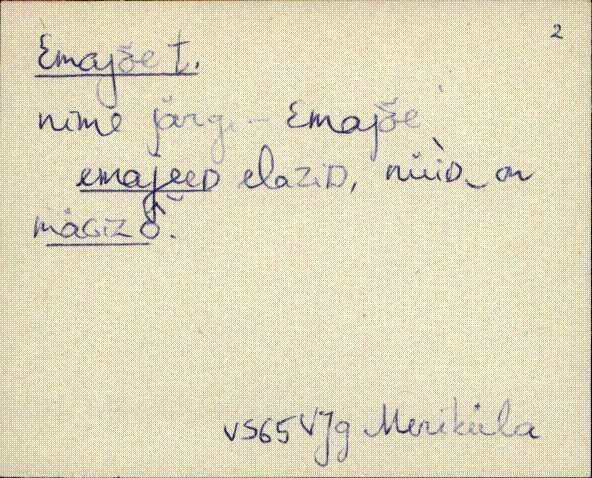 2
Emajõe t.
nime järgi – Emajõe
emajeeD elaziD, nüìD on
mäGizò.
VS65 VJg Meriküla